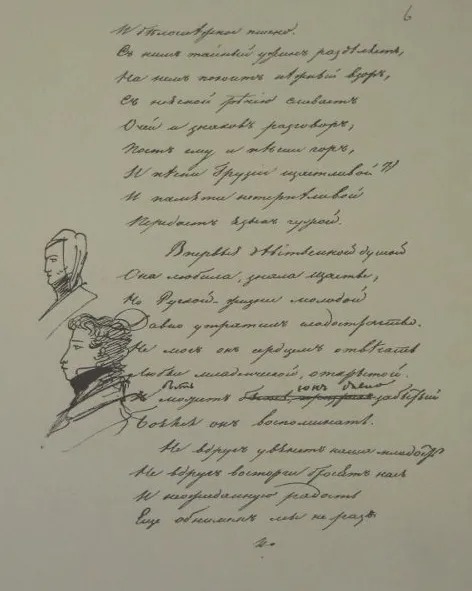 6
И бѣлоснѣжное пшено.
Съ нимъ тайный ужинъ раздѣляетъ,
На немъ покоитъ нѣжный взоръ,
Съ неясной рѣчию сливаетъ
Очей и знаковъ разговоръ,
Поетъ ему и пѣсни горъ,
И пѣсни Грузіи щастливой
И памяти нетерпѣливой
Передаетъ языкъ чужой.
Впервыя дѣвственной душой
Она любила, знала щастье,
Но Руской жизни молодой
Давно утратилъ сладострастье.
Не могъ онъ сердцемъ отвѣчать
Любви младенческой, открытой.
Быть сонъ
можетъ забытый
Боялся онъ воспоминать.
Не вдругъ увянетъ наша младость
Не вдругъ восторги бросятъ насъ
И неожиданную радость
Еще обнимемъ мы не разъ.